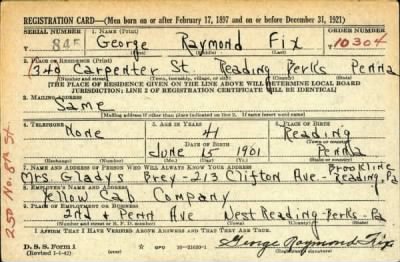 REGISTRATION CARD—(Men born on or after February 17, 1897 and on or before December 31, 1921)
SERIAL NUMBER 1. NAME (Print) ORDER NUMBER
845 George Raymond Fix 10304
(First) (Middle) (Last)
2. PLACE OF RESIDENCE (Print)
134 Carpenter St Reading Berks Penna
(Number and street) (Town, township, village, or city) (County) (State)
[THE PLACE OF RESIDENCE GIVEN ON THE LINE ABOVE WILL DETERMINE LOCAL BOARD
JURISDICTION; LINE 2 OF REGISTRATION CERTIFICATE WILL BE IDENTICAL]
3. MAILING ADDRESS
Same
[Mailing address if other than place indicated on line 2. If same insert word same]
4. TELEPHONE 5. AGE IN YEARS 6. PLACE OF BIRTH
None 41 Reading
DATE OF BIRTH (Town or county)
June 15 1901 Penna
(Exchange) (Number) (Mo.) (Day) (Yr.) (State or country)
7. NAME AND ADDRESS OF PERSON WHO WILL ALWAYS KNOW YOUR ADDRESS Brookline
Mrs. Gladys Brey - 213 Clifton Ave - Reading, Pa
8. EMPLOYER'S NAME AND ADDRESS
Yellow Cab Company
9. PLACE OF EMPLOYMENT OR BUSINESS
2nd & Penn Ave West Reading-Berks-Pa
(Number and street or R. F. D. number) (Town) (County) (State)
I AFFIRM THAT I HAVE VERIFIED ABOVE ANSWERS AND THAT THEY ARE TRUE.
D. S. S. Form 1
(Revised 1-1-42) GPO 16—21630-1 George Raymond Fix
(over) (Registrant's signature)
250 No. 8th St